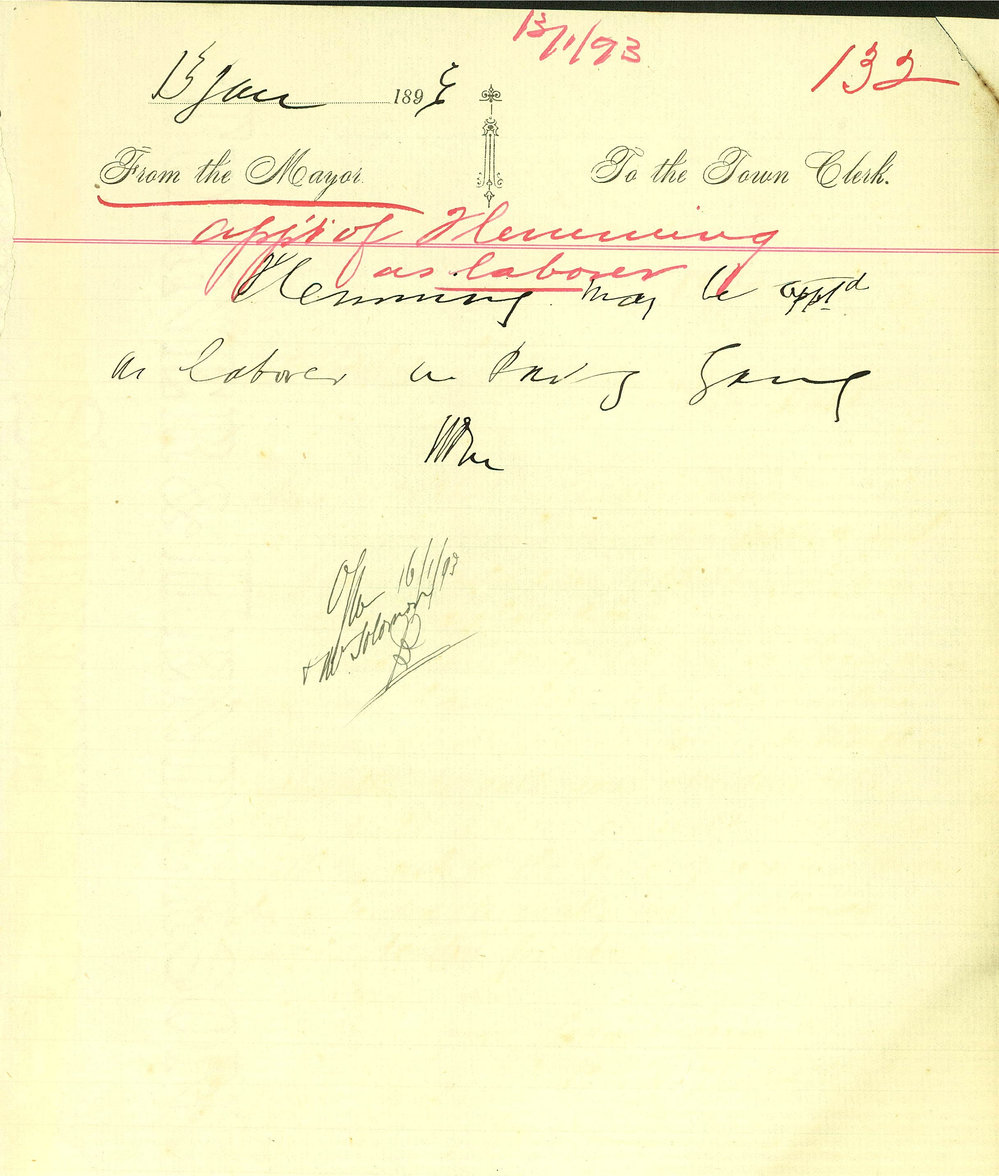 13/1/93
132
13 Jany 1893
From the Mayor To the Town Clerk.
app't of Hemming
as laborer
Hemming may be appt.d
as laborer in Paving Gang
16/1/93
Solomon